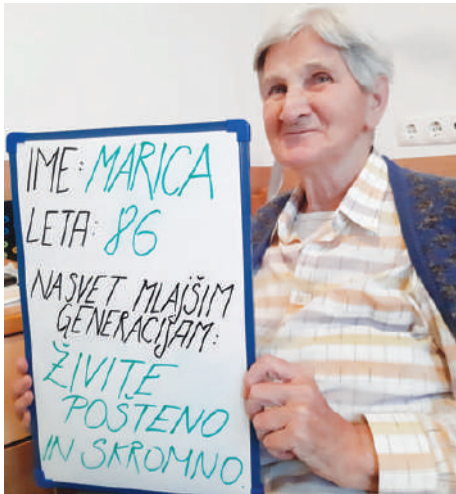 IME: MARICA
LETA: 86
NASVET MLAJŠIM
GENERACIJAM:
ŽIVITE
POŠTENO
IN SKROMNO.